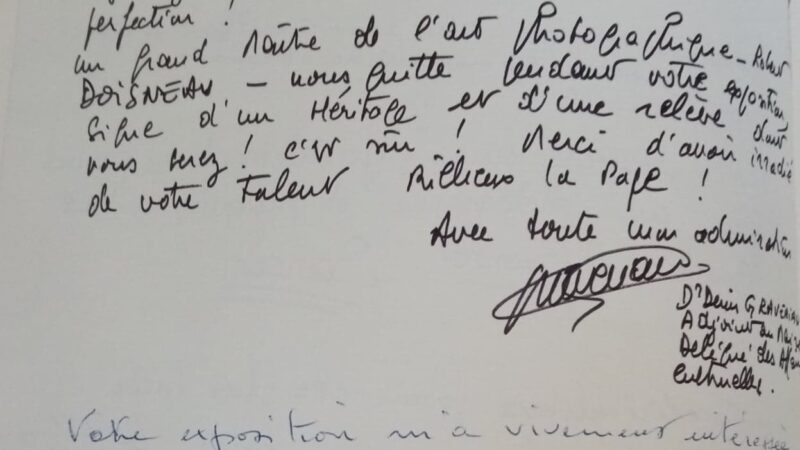 perfection !
un grand maître de l'art Photographique - Robert
DOISNEAU - nous quitte pendant votre exposition,
Signe d'un Héritage et d'une relève dont
vous serez ! c'est sûr ! Merci d'avoir irradié
de votre Talent Rillieux la Pape !
Avec toute mon admiration
Dr Denis
Adjoint au Maire
Délégué des Affaires
Culturelles.
Votre exposition m'a vivement intéressée